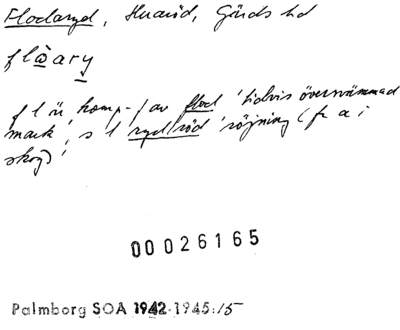 Flodaryd, Huaröd, Gärds hd
flɷ̀ary
f l är komp. av flod 'tidvis översvämmad
mark', s l ryd/röd 'röjning (fr a i
skog)'
00026165
Palmborg SOÅ 1942-1945:15